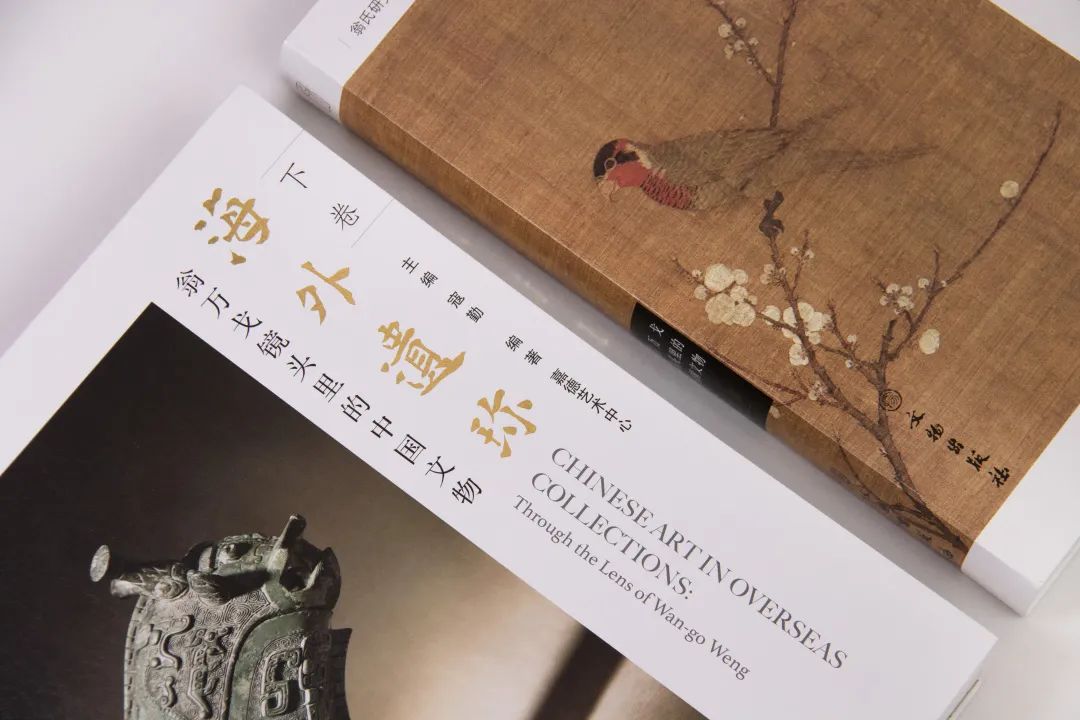 下卷
海外遺珍
翁万戈镜头里的中国文物
主编 寇勤
编著 嘉德艺术中心
CHINESE ART IN OVERSEAS
COLLECTIONS:
Through the Lens of Wan-go Weng
翁氏研
文物出版社